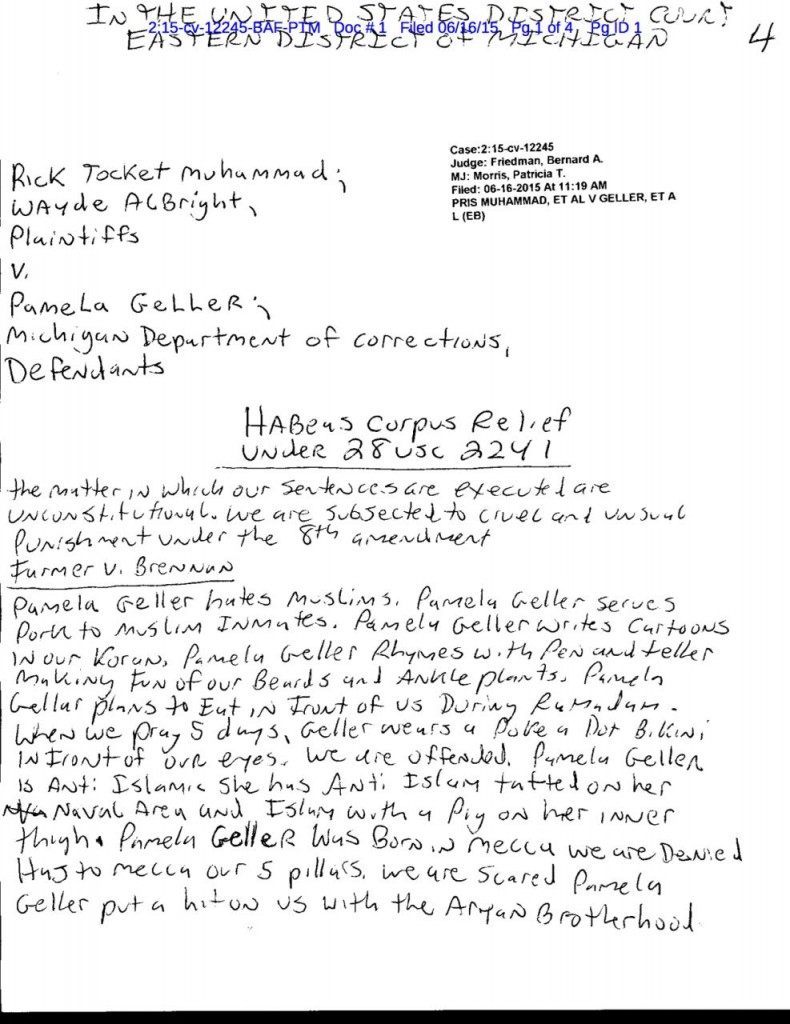 IN THE UNITED STATES DISTRICT COURT
2:15-cv-12245-BAF-PTM Doc # 1 Filed 06/16/15 Pg 1 of 4 Pg ID 1
EASTERN DISTRICT OF MICHIGAN
4
Case:2:15-cv-12245
Judge: Friedman, Bernard A.
MJ: Morris, Patricia T.
Filed: 06-16-2015 At 11:19 AM
PRIS MUHAMMAD, ET AL V GELLER, ET A
L (EB)
Rick Tocket Muhammad;
Wayde Albright,
Plaintiffs
V.
Pamela Geller;
Michigan Department of Corrections,
Defendants
Habeas Corpus Relief
Under 28 USC 2241
the matter in which our sentences are executed are
unconstitutional. we are subsected to cruel and unsual
Punishment under the 8th amendment
Farmer v. Brennan
Pamela Geller hates Muslims. Pamela Geller serves
Pork to Muslim Inmates. Pamela Geller writes Cartoons
in our Koran, Pamela Geller Rhymes with Pen and teller
Making Fun of our Beards and Ankle plants. Pamela
Gellar plans to Eat in Front of us During Ramadam.
When we pray 5 days, Geller wears a Poke a Dot Bikini
in Front of our eyes. We are offended. Pamela Geller
is Anti Islamic She has Anti Islam tatted on her
Naval Area and Islam with a Pig on her inner
thigh. Pamela Geller Was Born in Mecca we are Denied
Haj to Mecca our 5 pillars. we are scared Pamela
Geller put a hit on us with the Aryan Brotherhood